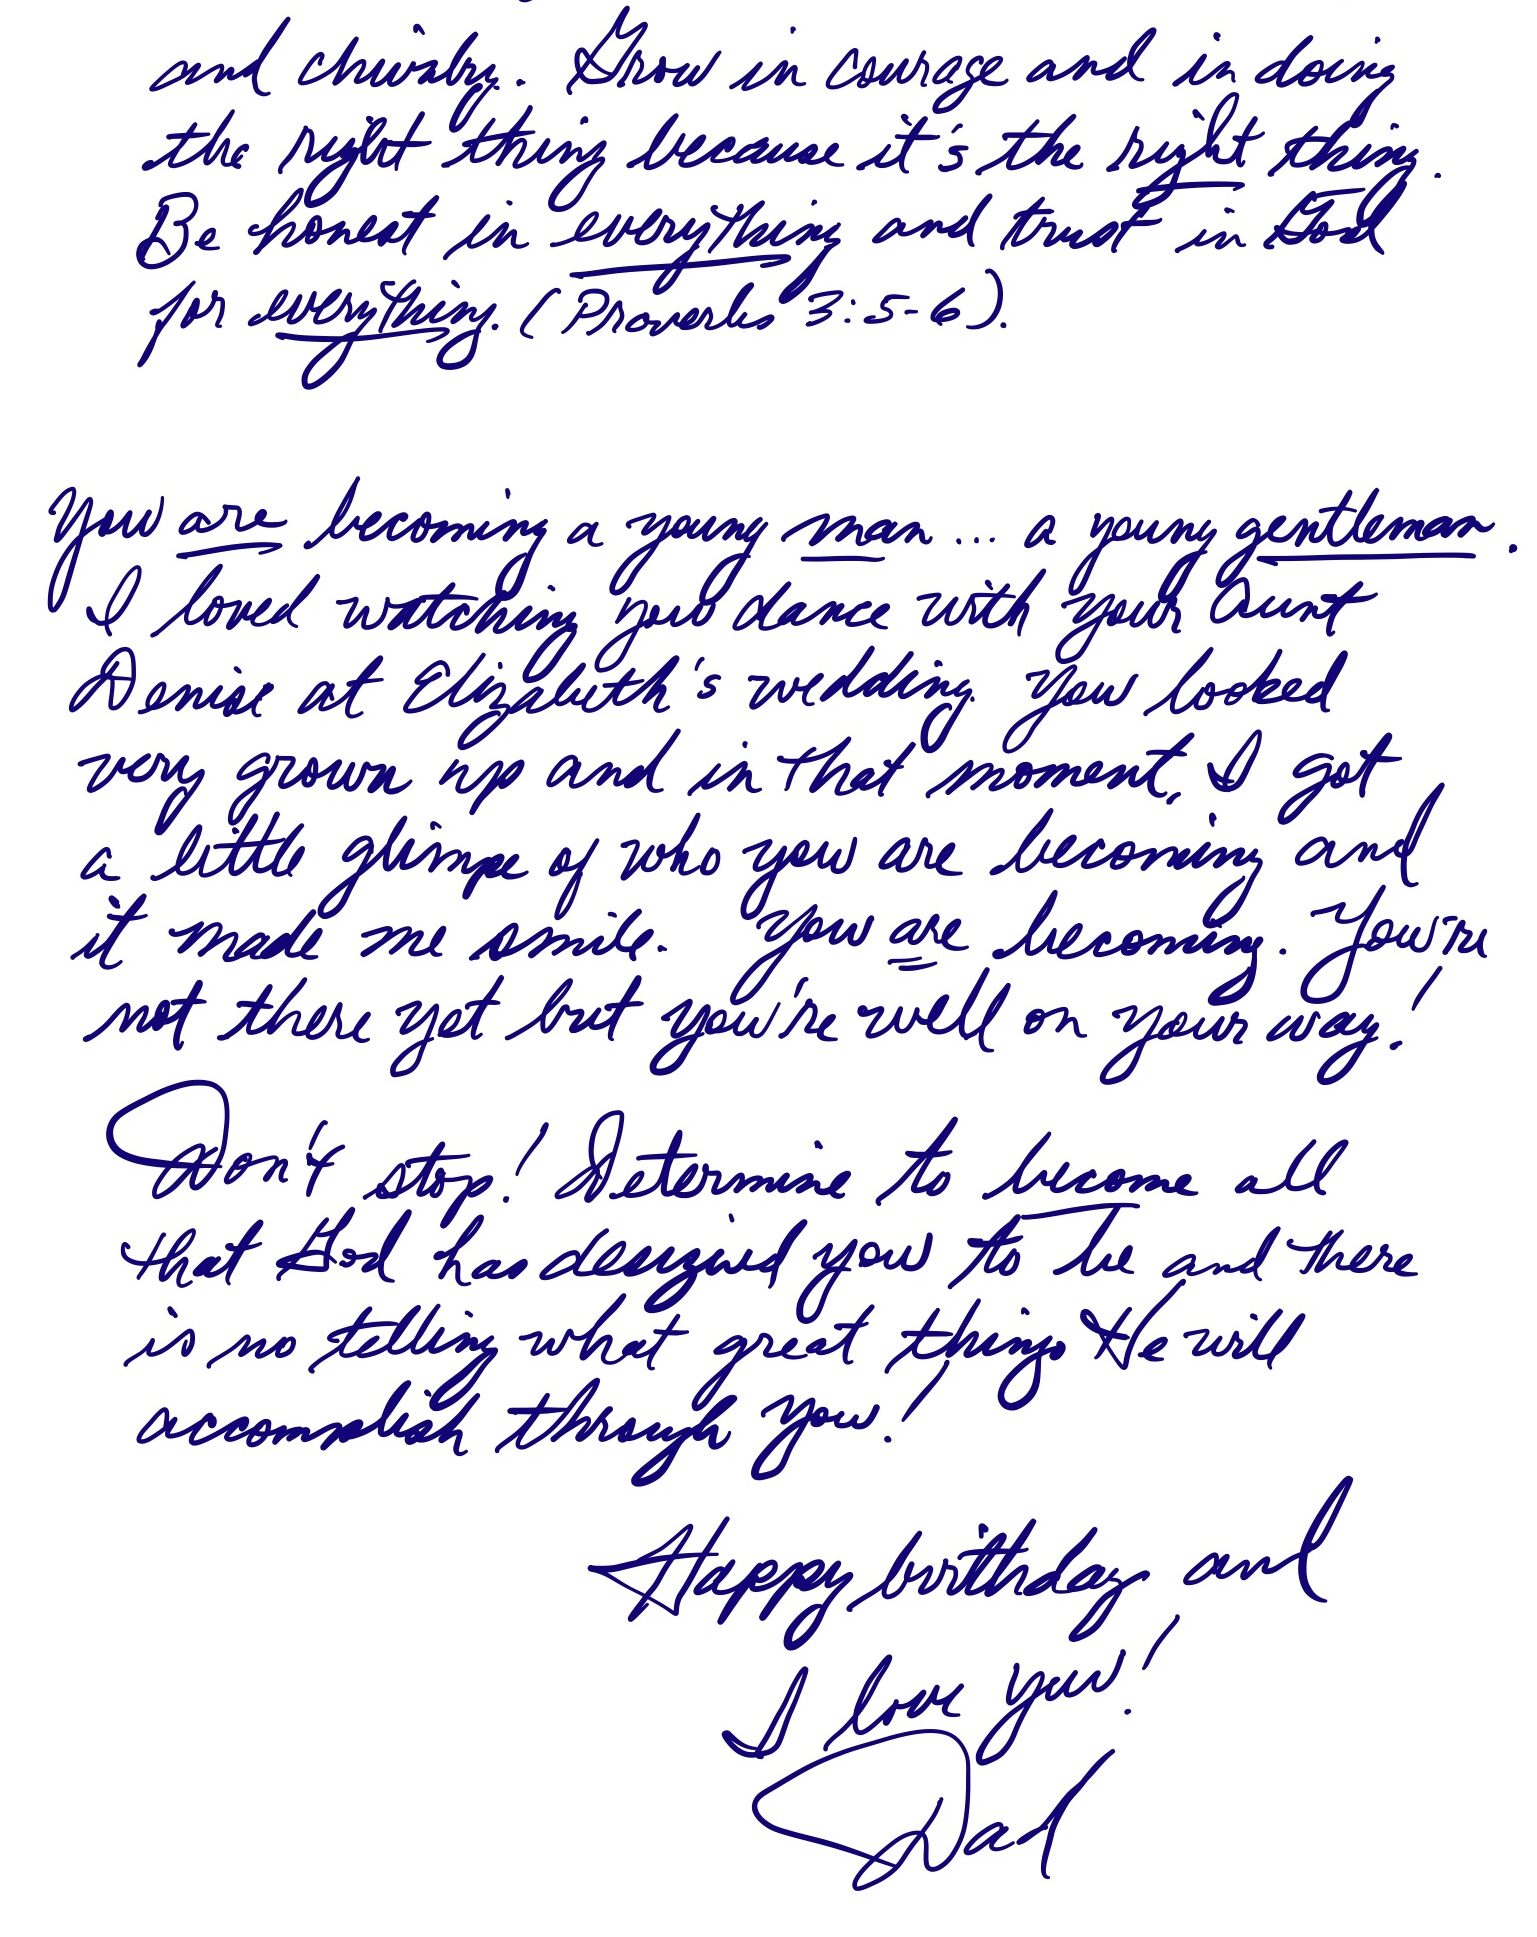 and chivalry. Grow in courage and in doing
the right thing because it's the right thing.
Be honest in everything and trust in God
for everything. (Proverbs 3:5-6).
You are becoming a young man... a young gentleman.
I loved watching you dance with your Aunt
Denise at Elizabeth's wedding. You looked
very grown up and in that moment, I got
a little glimpse of who you are becoming and
it made me smile. You are becoming. You're
not there yet but you're well on your way!
Don't stop! Determine to become all
that God has designed you to be and there
is no telling what great things He will
accomplish through you!
Happy birthday and
I love you!
Dad